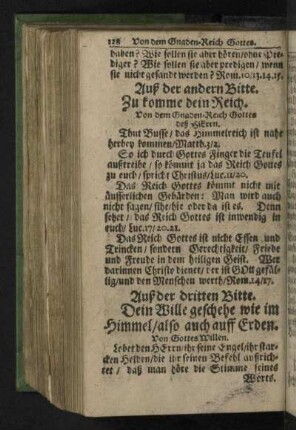 116 Von dem Gnaden-Reich Gottes.
haben? Wie sollen sie aber hören/ohne Pre-
diger? Wie sollen sie aber predigen/wenn
sie nicht gesandt werden? Rom.10/13.14.15.
Auß der andern Bitte.
Zu komme dein Reich.
Von dem Gnaden-Reich Gottes
deß HErrn.
Thut Busse/das Himmelreich ist nahe
herbey kommen/Matth.3/2.
So ich durch Gottes Finger die Teufel
austreibe/so kömmt ja das Reich Gottes
zu euch/spricht Christus/Luc.11/20.
Das Reich Gottes kömmt nicht mit
äusserlichen Gebärden: Man wird auch
nicht sagen/sihe/hie oder da ist es. Denn
sehet/das Reich Gottes ist inwendig in
euch/Luc.17/20.21.
Das Reich Gottes ist nicht Essen und
Trincken/sondern Gerechtigkeit/Friede
und Freude in dem heiligen Geist. Wer
darinnen Christo dienet/der ist GOtt gefäl-
lig/und den Menschen werth/Rom.14/17.
Auß der dritten Bitte.
Dein Wille geschehe wie im
Himmel/also auch auff Erden.
Von Gottes Willen.
Lobet den HErrn/ihr seine Engel/ihr star-
cken Helden/die ihr seinen Befehl außrich-
tet/daß man höre die Stimme seines
Worts.